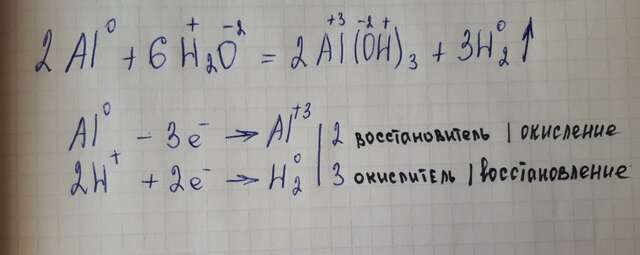 2Al⁰ + 6H₂⁺O⁻² = 2Al⁺³(O⁻²H⁺)₃ + 3H₂⁰↑
Al⁰ - 3e⁻ → Al⁺³ | 2 восстановитель | окисление
2H⁺ + 2e⁻ → H₂⁰ | 3 окислитель | восстановление